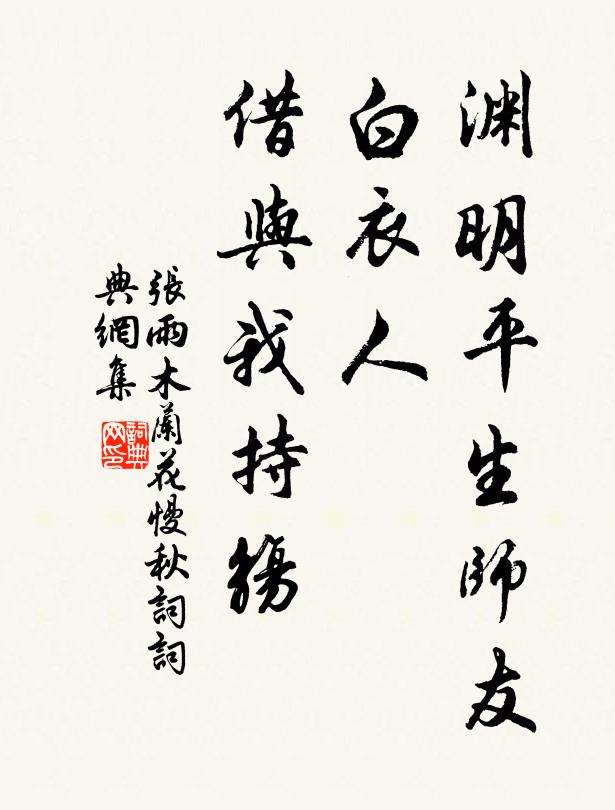 渊明平生師友
白衣人
借與我持觴
張雨木蘭花慢秋詞詞
典網集
詞典
网印